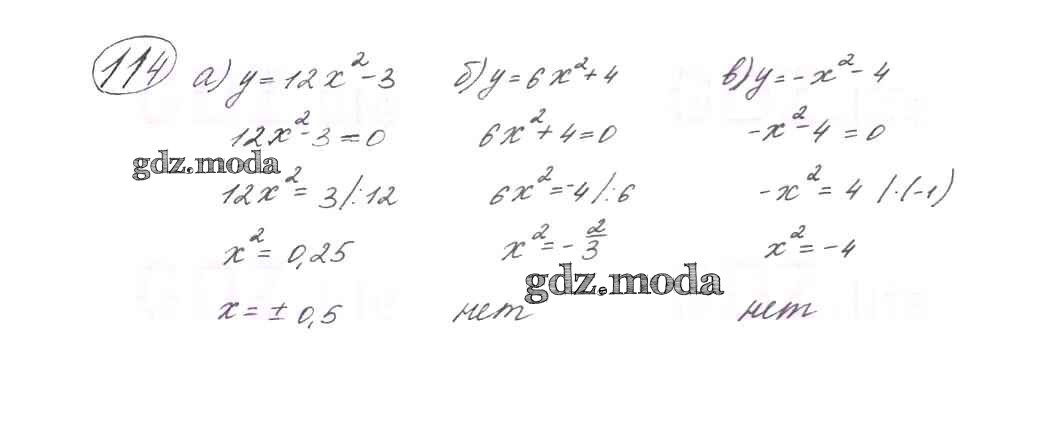 114 а) y = 12x² - 3
12x² - 3 = 0
gdz.moda
12x² = 3 /:12
x² = 0,25
x = ± 0,5
б) y = 6x² + 4
6x² + 4 = 0
6x² = -4 /:6
x² = - 2/3
gdz.moda
нет
в) y = -x² - 4
-x² - 4 = 0
-x² = 4 /·(-1)
x² = -4
нет